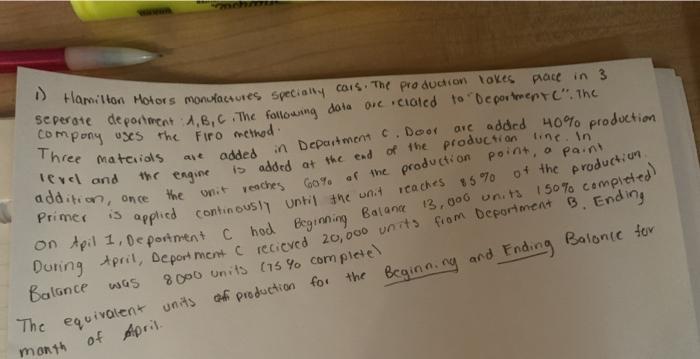 1) Hamilton Motors manufactures specialty cars. The production takes place in 3
seperate department: A,B,C. The following data are related to "Department C". The
company uses the FIFO method.
Three materials are added in Department C. Door are added 40% production
level and the engine is added at the end of the production line. In
addition, once the unit reaches 60% of the production point, a paint
primer is applied continously until the unit reaches 85% of the production.
On Apil 1, Department C had Beginning Balance 13,000 units (50% completed)
During April, Department C recieved 20,000 units from Department B. Ending
Balance was 8000 units (75% complete)
The equivalent units of production for the Beginning and Ending Balance for
month of April.